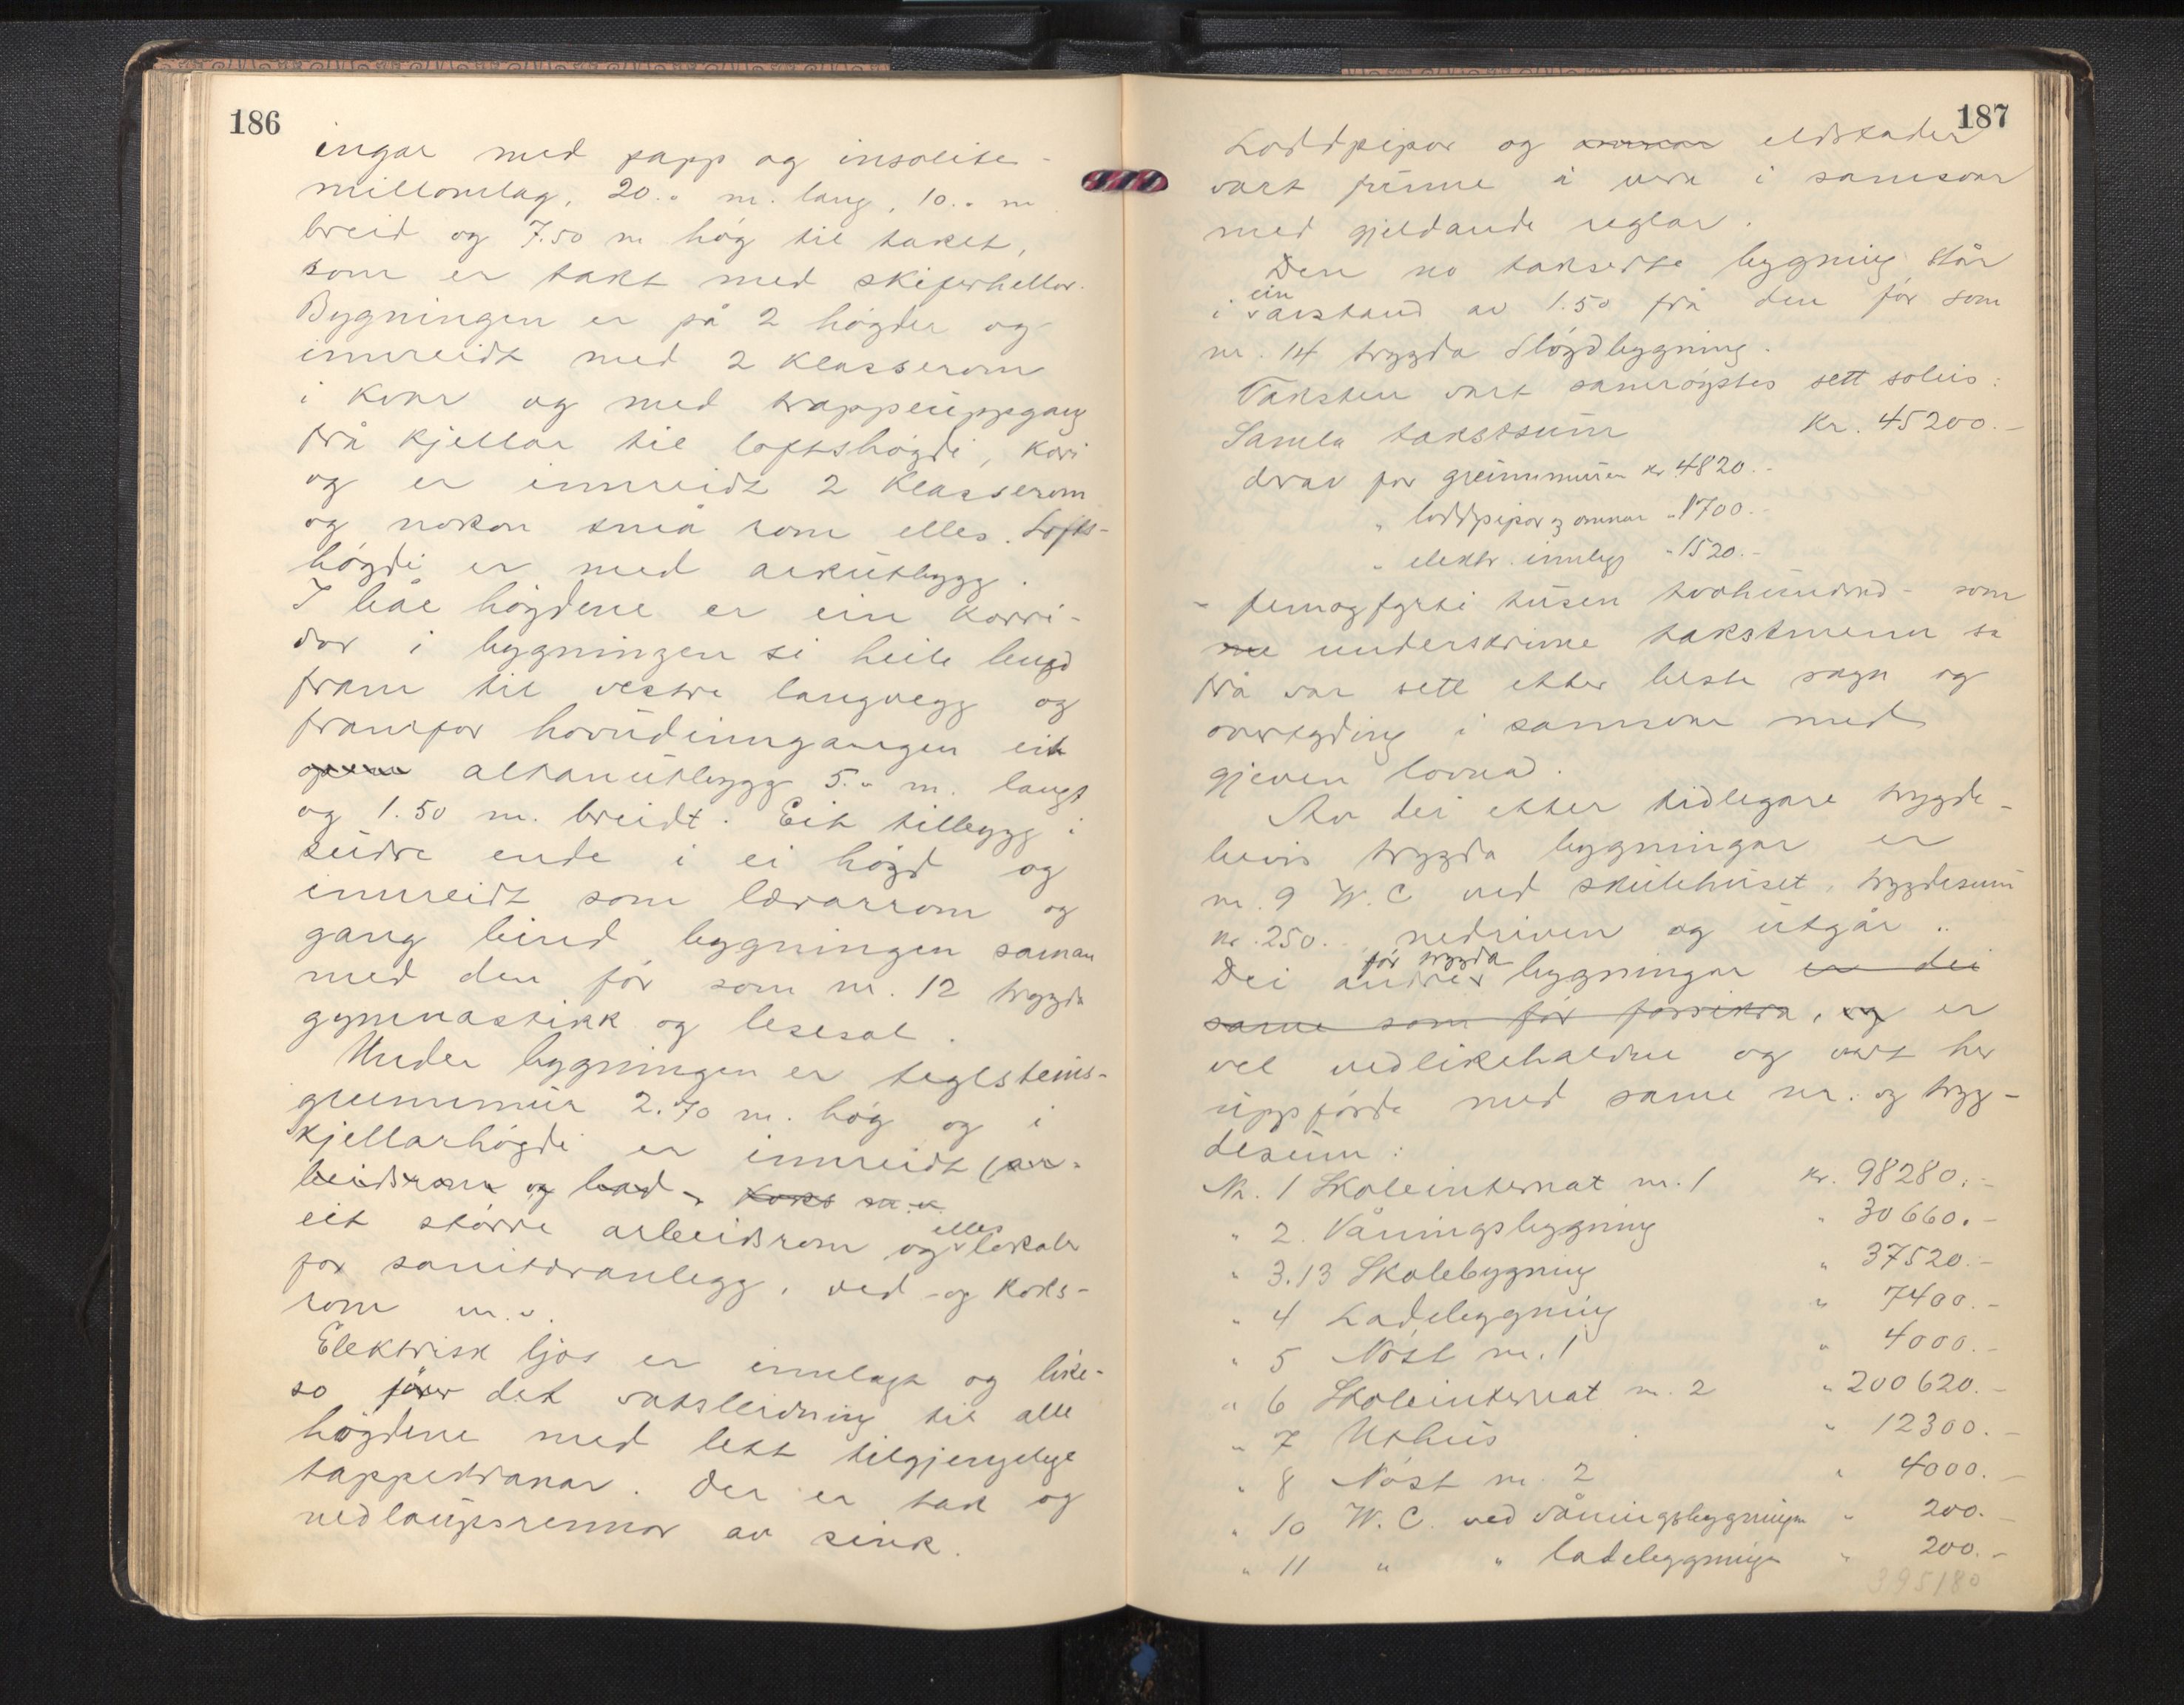 186
ingar med papp og insolite-
millomlag, 20.0 m. lang, 10.0 m
breid og 7.50 m høg til taket,
som er takt med skiferhellor.
Bygningen er på 2 høgder og
innreidt med 2 klasserom
i kvar og med trappeuppgang
frå kjellar til loftshøgdi, kori
og er innreidt 2 klasserom
og nokon små rom elles. Lofts-
høgdi er med arkutbygg.
I båe høgdene er ein korri-
dor i bygningen si heile lengd
fram til vestre langvegg og
framfor hovudinngangen eit
altanutbygg 5.0 m. langt
og 1.50 m. breidt. Eit tilbygg i
sudre ende i ei høgd og
innreidt som lærarrom og
gang bind bygningen saman
med den før som nr. 12 trygda
gymnastikk og lesesal.
Under bygningen er teglsteins-
grunnmur 2.70 m. høg og i
kjellarhøgdi er innreidt (ar-
beidsrom og bad - koks m.v.
eit større arbeidsrom og elles lokaler
for sanitæranlegg, ved- og koks-
rom m.v.
Elektrisk ljos er innlagt og like-
so fører det vatsleidning til alle
høgdene med lett tilgjengelege
tappekranar. Der er tak og
nedlaupsrennor av sink.
187
Loddpipor og omnar eldstader
vart funne å vera i samsvar
med gjeldande reglar.
Den no takserte bygning står
i ein avstand av 1.50 frå den før som
nr. 14 trygda Sløydbygning.
Taksten vart samrøystes sett soleis:
Samla takstsum Kr. 45200.-
derav for grunnmuren kr. 4820.-
" loddpipor og omnar " 1700.-
" elektr. innlegg " 1520.-
- femogfyrti tusen tvohundrad - som
me underskrivne takstmenn sa
frå var sett etter beste sagn og
overtyding i samsvar med
gjeven lovnad.
Av dei etter tidlegare trygde-
bevis trygda bygningar er
nr. 9 W.C ved skulehuset, trygdesum
kr. 250.- nedriven og utgår..
Dei andre før trygda bygningar er dei
same som før forsikra, og er
vel vedlikehaldne og vart her
uppførde med same nr. og tryg-
desum:
Nr. 1 Skoleinternat nr. 1 kr. 98280.-
" 2. Våningsbygning " 30660.-
" 3.13 Skolebygning " 37520.-
" 4 Ladebygning " 7400.-
" 5 Nøst nr. 1 " 4000.-
" 6 Skoleinternat nr. 2 " 200620.-
" 7 Uthus " 12300.-
" 8 Nøst nr. 2 " 4000.-
" 10 W.C. ved våningsbygningen " 200.-
" 11 " " ladebygningen " 200.-
395180